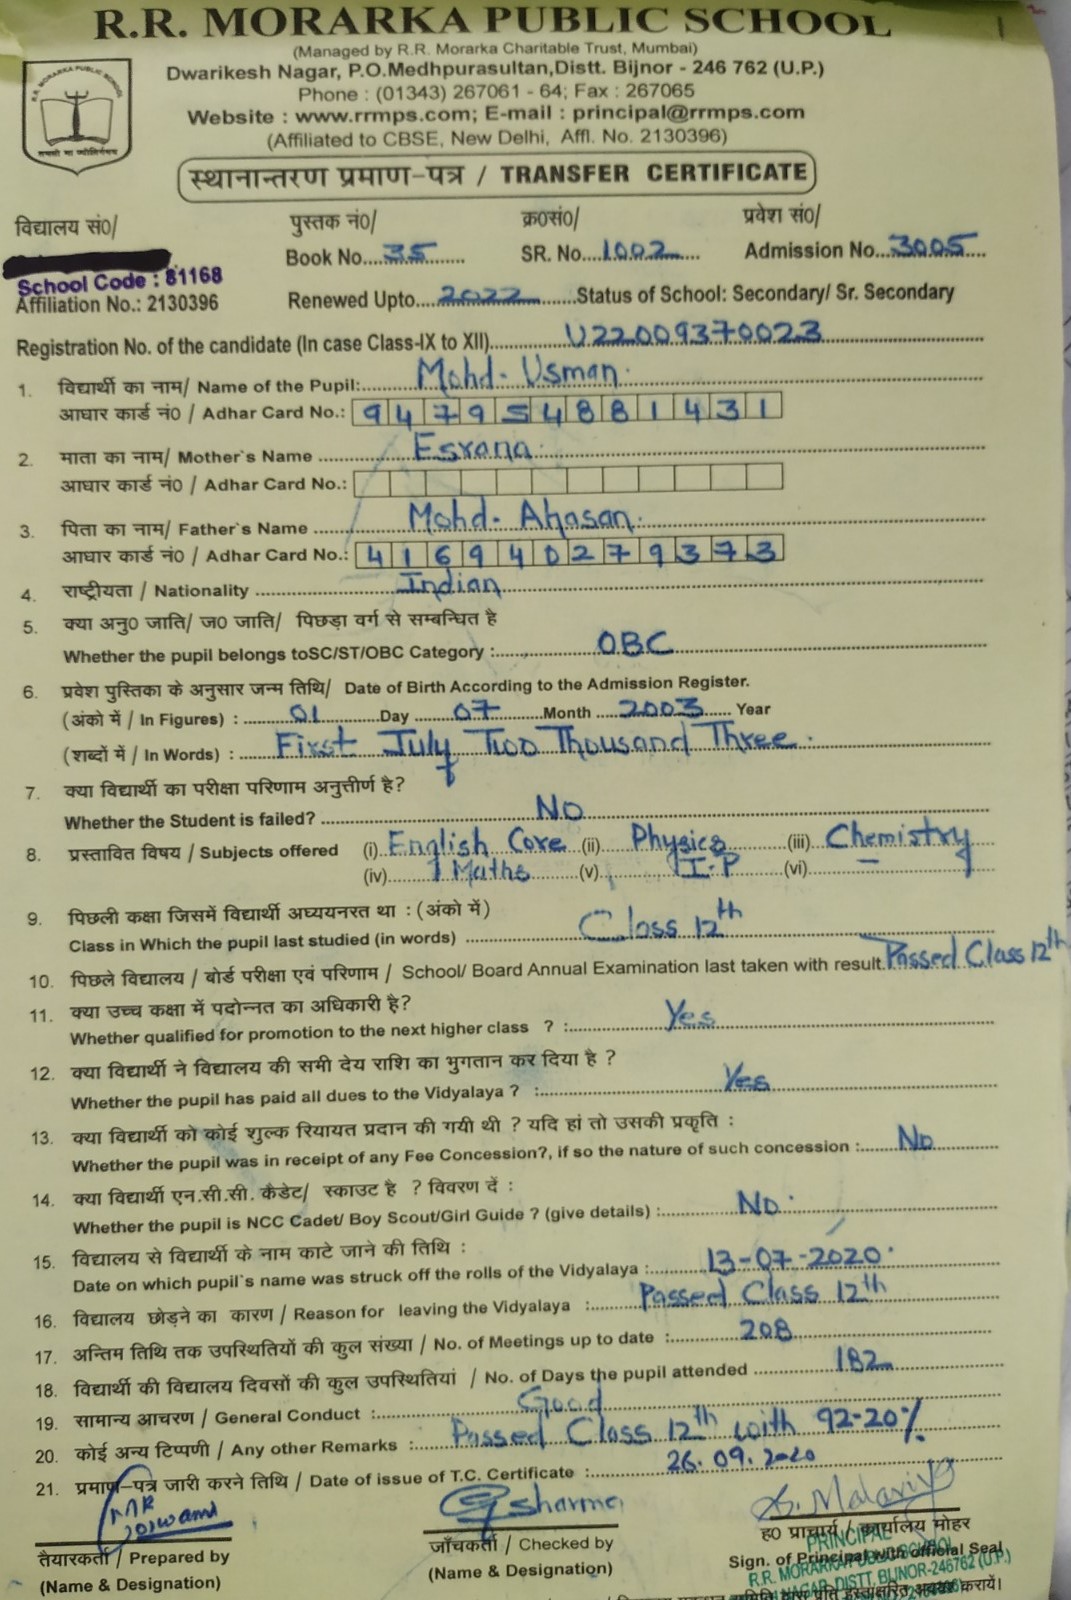 R.R. MORARKA PUBLIC SCHOOL
(Managed by R.R. Morarka Charitable Trust, Mumbai)
Dwarikesh Nagar, P.O.Medhpurasultan,Distt. Bijnor - 246 762 (U.P.)
Phone : (01343) 267061 - 64; Fax : 267065
Website : www.rrmps.com; E-mail : principal@rrmps.com
(Affiliated to CBSE, New Delhi, Affl. No. 2130396)
R.R. MORARKA PUBLIC SCHOOL
तमसो मा ज्योतिर्गमय
स्थानान्तरण प्रमाण-पत्र / TRANSFER CERTIFICATE
विद्यालय सं0/ पुस्तक नं0/ क्र0सं0/ प्रवेश सं0/
Book No....35...... SR. No....1002.... Admission No...3005...
School Code : 81168
Affiliation No.: 2130396 Renewed Upto....2022......Status of School: Secondary/ Sr. Secondary
Registration No. of the candidate (In case Class-IX to XII)..........U22009370023
1. विद्यार्थी का नाम/ Name of the Pupil:........Mohd. Usman.
आधार कार्ड नं0 / Adhar Card No.: 947954881431
2. माता का नाम/ Mother`s Name ........Esrana.
आधार कार्ड नं0 / Adhar Card No.:
3. पिता का नाम/ Father`s Name ........Mohd. Ahasan.
आधार कार्ड नं0 / Adhar Card No.: 416940279373
4. राष्ट्रीयता / Nationality ........Indian
5. क्या अनु0 जाति/ ज0 जाति/ पिछड़ा वर्ग से सम्बन्धित है
Whether the pupil belongs toSC/ST/OBC Category :........OBC
6. प्रवेश पुस्तिका के अनुसार जन्म तिथि/ Date of Birth According to the Admission Register.
(अंको में / In Figures) : ......01......Day ......07......Month ....2003..... Year
(शब्दों में / In Words) : ......First July Two Thousand Three.
7. क्या विद्यार्थी का परीक्षा परिणाम अनुत्तीर्ण है?
Whether the Student is failed? ........No
8. प्रस्तावित विषय / Subjects offered (i) English Core (ii) Physics (iii) Chemistry
(iv) Maths (v) I.P (vi) —
9. पिछली कक्षा जिसमें विद्यार्थी अघ्ययनरत था : (अंको में)
Class in Which the pupil last studied (in words) ........Class 12th
10. पिछले विद्यालय / बोर्ड परीक्षा एवं परिणाम / School/ Board Annual Examination last taken with result. Passed Class 12th
11. क्या उच्च कक्षा में पदोन्नत का अधिकारी है?
Whether qualified for promotion to the next higher class ? :........Yes
12. क्या विद्यार्थी ने विद्यालय की सभी देय राशि का भुगतान कर दिया है ?
Whether the pupil has paid all dues to the Vidyalaya ? :........Yes
13. क्या विद्यार्थी को कोई शुल्क रियायत प्रदान की गयी थी ? यदि हां तो उसकी प्रकृति :
Whether the pupil was in receipt of any Fee Concession?, if so the nature of such concession :....No
14. क्या विद्यार्थी एन.सी.सी. कैडेट/ स्काउट है ? विवरण दें :
Whether the pupil is NCC Cadet/ Boy Scout/Girl Guide ? (give details) :........No.
15. विद्यालय से विद्यार्थी के नाम काटे जाने की तिथि :
Date on which pupil`s name was struck off the rolls of the Vidyalaya :........13-07-2020.
16. विद्यालय छोड़ने का कारण / Reason for leaving the Vidyalaya :........Passed Class 12th
17. अन्तिम तिथि तक उपस्थितियों की कुल संख्या / No. of Meetings up to date :........208
18. विद्यार्थी की विद्यालय दिवसों की कुल उपस्थितियां / No. of Days the pupil attended ........182
19. सामान्य आचरण / General Conduct :........Good
20. कोई अन्य टिप्पणी / Any other Remarks :......Passed Class 12th with 92-20%
21. प्रमाण-पत्र जारी करने तिथि / Date of issue of T.C. Certificate :........26.09.2020
sharma
तैयारकर्ता / Prepared by जाँचकर्ता / Checked by ह0 प्राचार्य / कार्यालय मोहर
(Name & Designation) (Name & Designation) Sign. of Principal with official Seal
PRINCIPAL
R.R. MORARKA PUBLIC SCHOOL
NAGAR, DISTT. BIJNOR-246762 (U.P.)